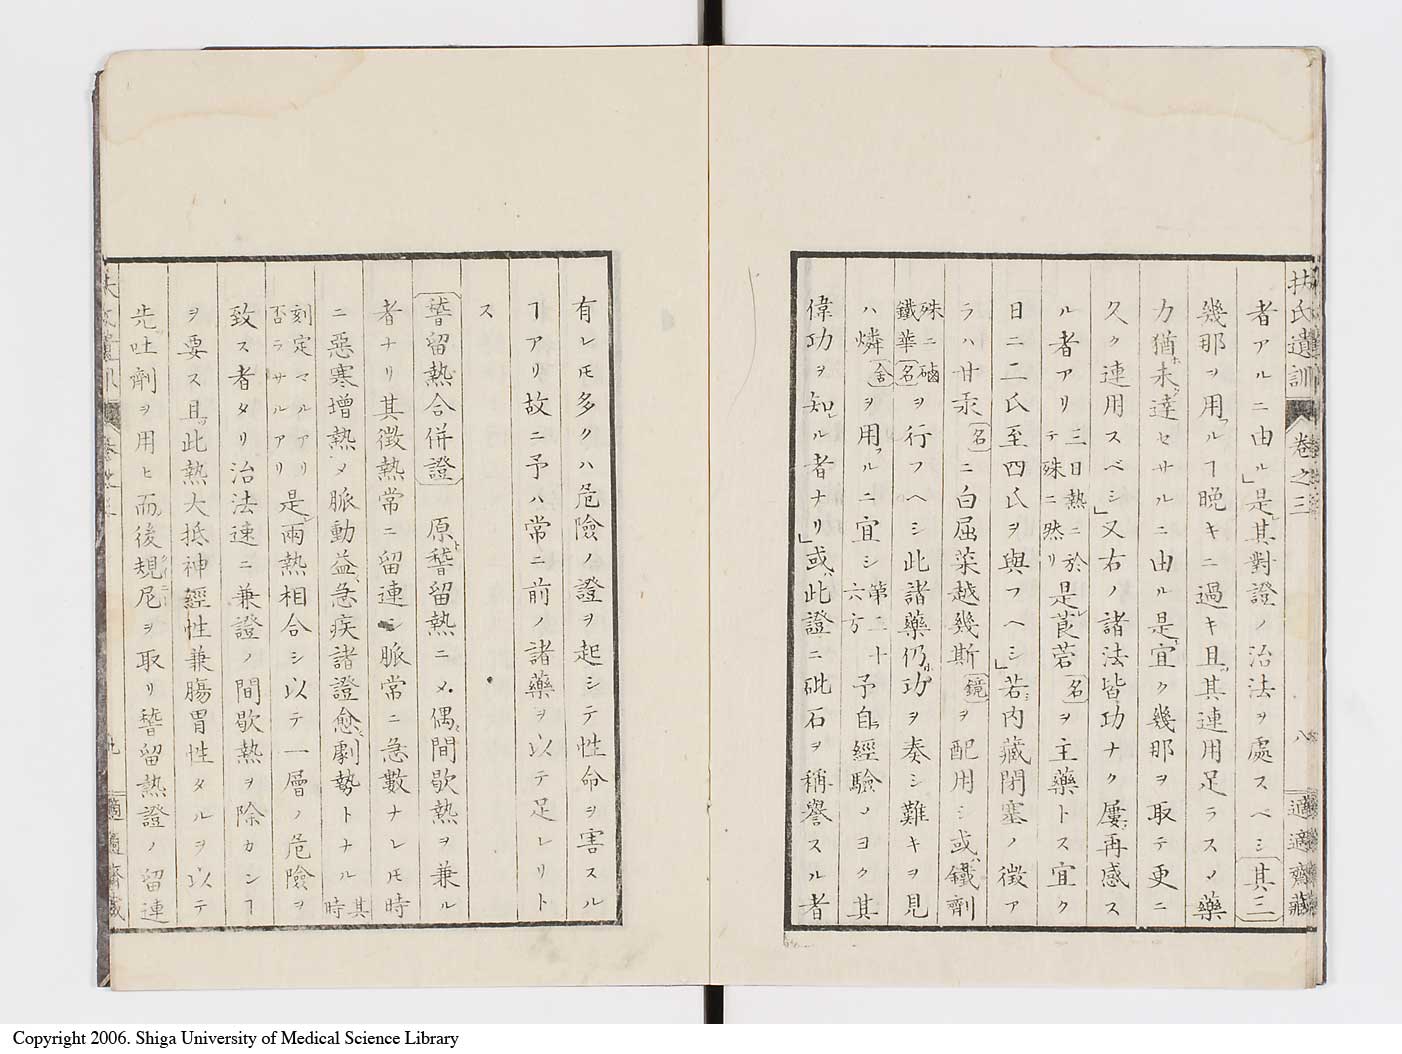 扶氏遺訓 卷之三 八 適適齋藏
者アルニ由ル」是其對證ノ治法ヲ處スベシ其三
幾那ヲ用ルヿ晩キニ過キ且其連用足ラスノ藥
力猶未達セサルニ由ル是宜ク幾那ヲ取テ更ニ
久ク連用スベシ」又右ノ諸法皆功ナク屢再感ス
ル者アリ三日熱ニ於テ殊ニ然リ是莨菪名ヲ主藥トス宜ク
日ニ二氏至四氏ヲ與フヘシ」若内藏閉塞ノ徴ア
ラハ甘汞名ニ白屈菜越幾斯鏡ヲ配用シ或鐵劑
殊ニ磠鐵華名ヲ行フヘシ此諸藥仍功ヲ奏シ難キヲ見
ハ燐舎ヲ用ルニ宜シ第二十六方予自經驗ノヨク其
偉功ヲ知ル者ナリ」或此證ニ砒石ヲ稱譽スル者
有レ𪜈多クハ危險ノ證ヲ起シテ性命ヲ害スル
ヿアリ故ニ予ハ常ニ前ノ諸藥ヲ以テ足レリト
ス
稽留熱合併證 原稽留熱ニメ偶間歇熱ヲ兼ル
者ナリ其徴熱常ニ留連シ脈常ニ急數ナレ𪜈時
ニ惡寒增熱メ脈動益急疾諸證愈劇勢トナル其時
刻定マルアリ否ラサルアリ是兩熱相合シ以テ一層ノ危險ヲ
致ス者タリ治法速ニ兼證ノ間歇熱ヲ除カンヿ
ヲ要ス且此熱大抵神經性兼膓胃性タルヲ以テ
先吐劑ヲ用ヒ而後規尼ヲ取リ稽留熱證ノ留連
九 適適齋藏
Copyright 2006. Shiga University of Medical Science Library